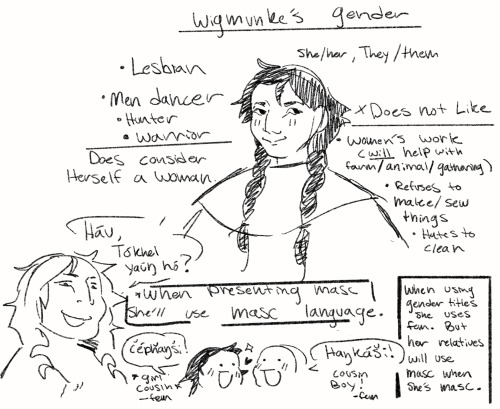 Wigmunke's gender
She/her, They/them
• Lesbian
• Men dancer
• Hunter
• Warrior
Does consider
Herself a Woman.
x Does not Like
• Women's work
(will help with
farm/animal/gathering)
• Refuses to
make/sew
things
• Hates to
clean
Háu,
Tókhel
yaúŋ hó?
*When presenting masc
she'll use masc language.
When using
gender titles
she uses
fem. But
her relatives
will use
masc when
she's masc.
čépȟaŋší!
*girl
cousin
-fem
Haŋkáši!
cousin
Boy!
-fem